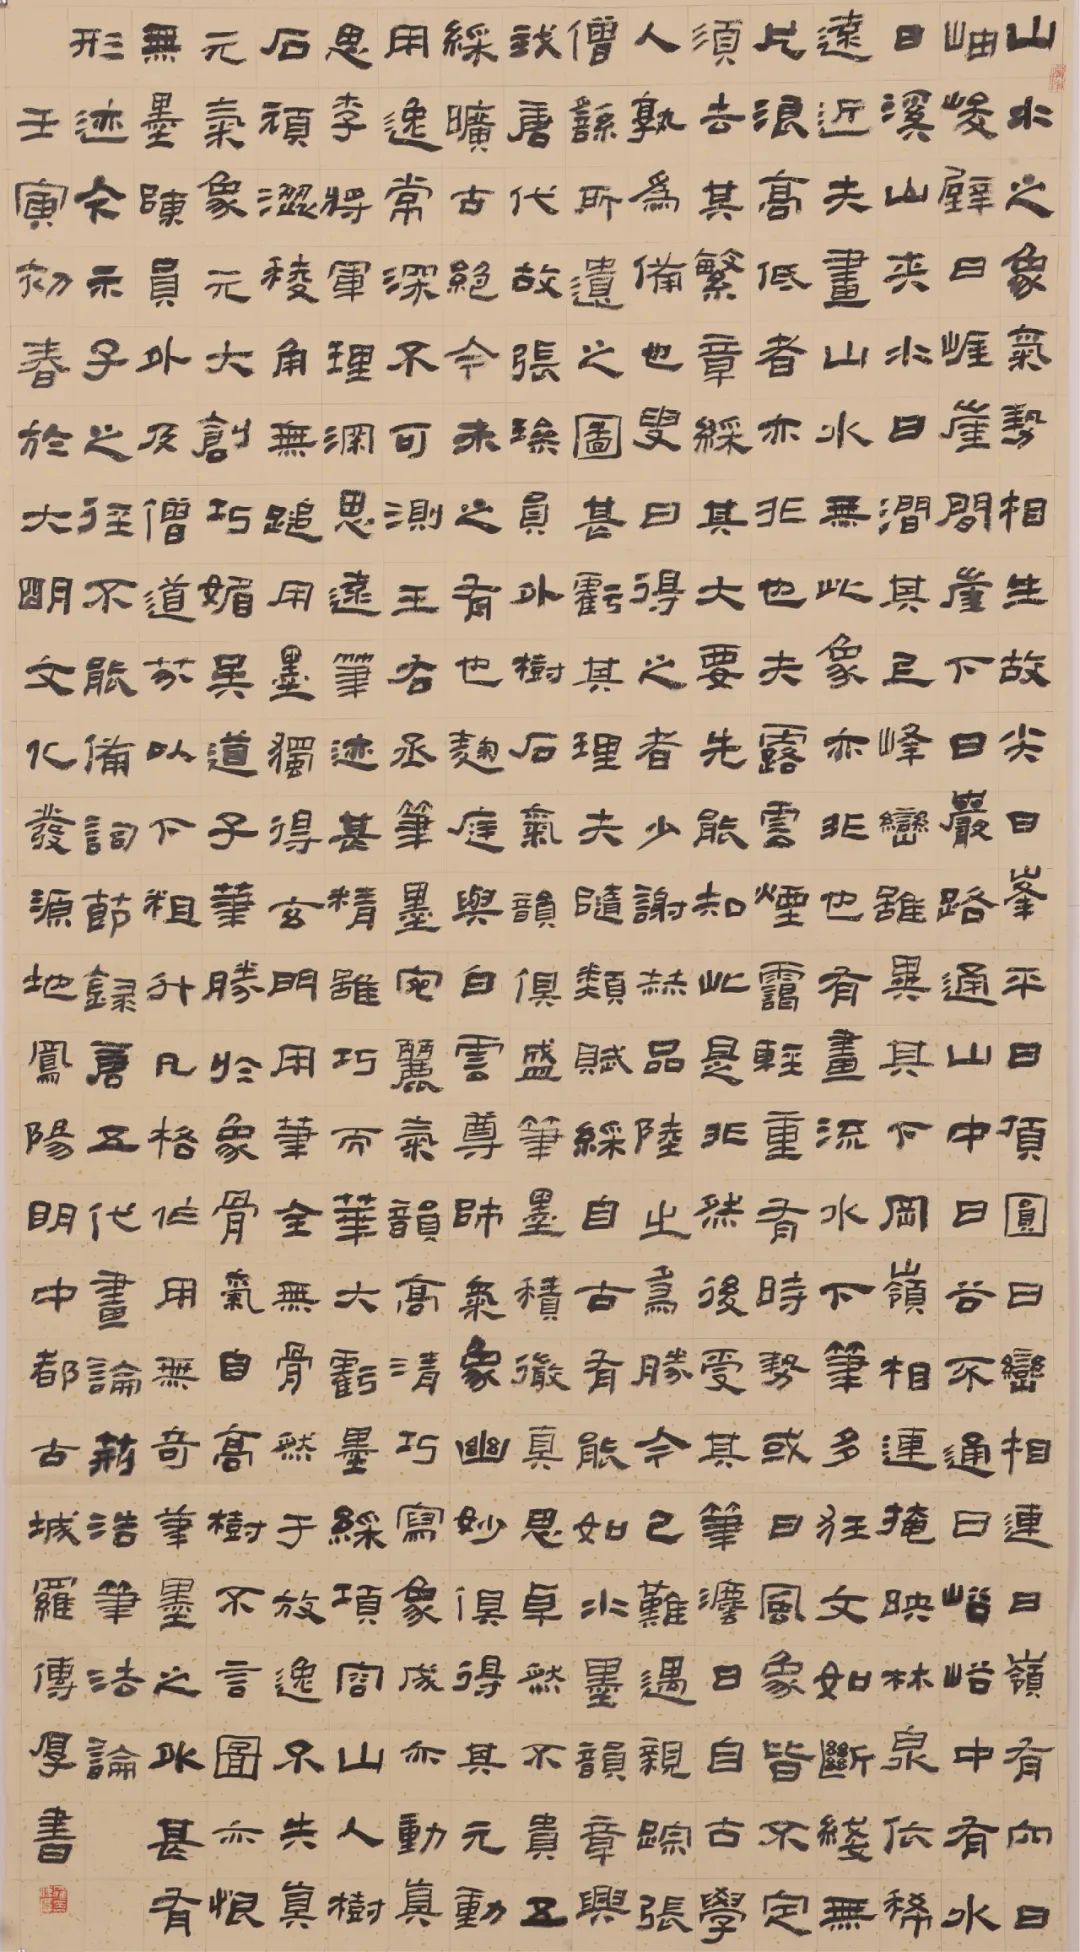 山水之象氣勢相生故尖曰峯平曰頂圓曰巒相連曰嶺有穴曰
岫峻壁曰崕崖間崖下曰巖路通山中曰谷不通曰峪峪中有水
曰溪山夾水曰澗其上峰巒雖異其下岡嶺相連掩映林泉依稀
遠近夫畫山水無此象亦非也有畫流水下筆多狂文如斷綫無
片浪高低者亦非也夫露雲煙靄輕重有時勢或曰風象皆不定
須去其繁章綵其大要先能知此是非然後受其筆灋曰自古學
人孰爲備也叟曰得之者少謝赫品陸之爲勝今已難遇親踪張
僧繇所遺之圖甚虧其理夫隨類賦綵自古有能如水墨韻章興
我唐代故張璪員外樹石氣韻俱盛筆墨積徵真思卓然不貴五
綵曠古絕今未之有也麴庭與白雲尊師氣象幽妙俱得其元動
用逸常深不可測王右丞筆墨宛麗氣韻高清巧寫象成亦動真
思李將軍理深思遠筆迹甚精雖巧而華大虧墨綵項容山人樹
石頑澀稜角無䠞用墨獨得玄門用筆全無骨然于放逸不失真
元氣象元大創巧媚吳道子筆勝於象骨氣自高樹不言圖亦恨
無墨陳員外及僧道芬以下粗升凡格作用無奇筆墨之行甚有
形迹今示子之徑不能備詞節録唐五代畫論荊浩筆法論
壬寅初春於大明文化發源地鳳陽明中都古城羅傳厚書